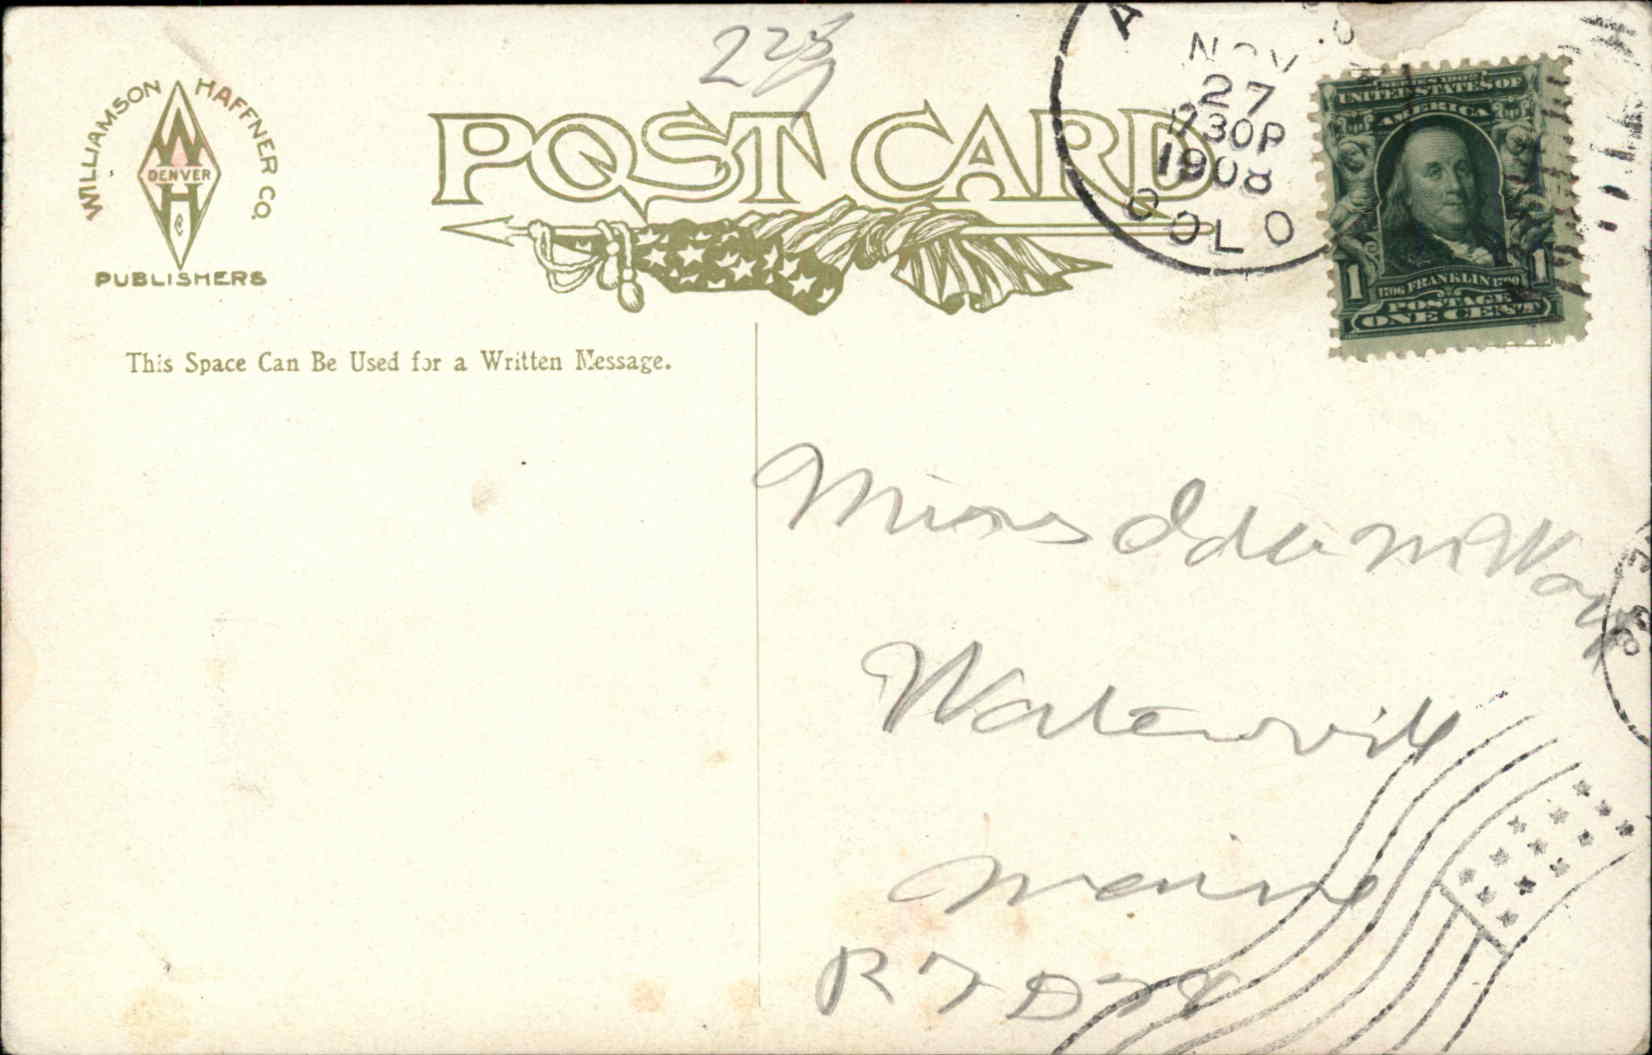 223
WILLIAMSON HAFFNER CO.
WH
DENVER
Co
PUBLISHERS
POST CARD
NOV
27
730P
1908
COLO
UNITED STATES OF
AMERICA
1 1706 FRANKLIN 1790 1
POSTAGE
ONE CENT
This Space Can Be Used for a Written Message.
Miss Ida M Ware
Waterville
Maine
R F D